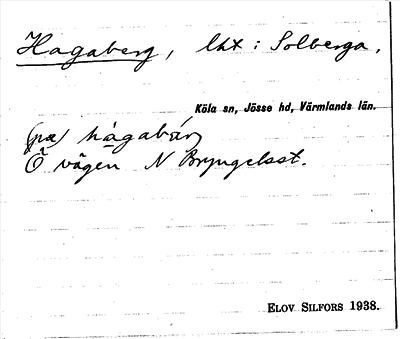 Hagaberg, lht i Solberga.
Köla sn, Jösse hd, Värmlands län.
(pæ) hàgabær̨
Ö vägen N Bryngelsst.
ELOV SILFORS 1938.